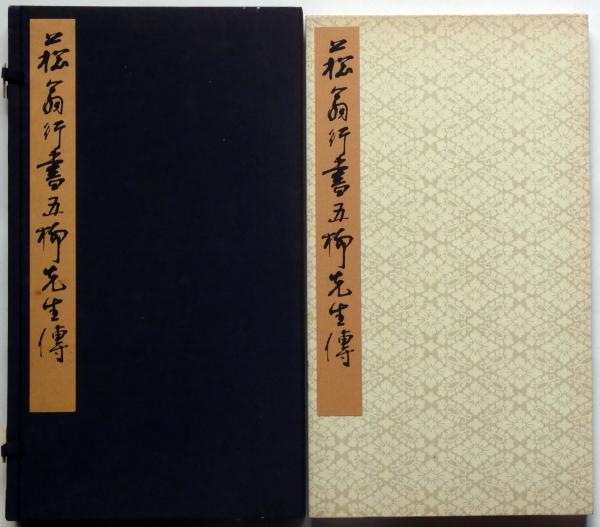 菘翁行書五柳先生傳
菘翁行書五柳先生傳